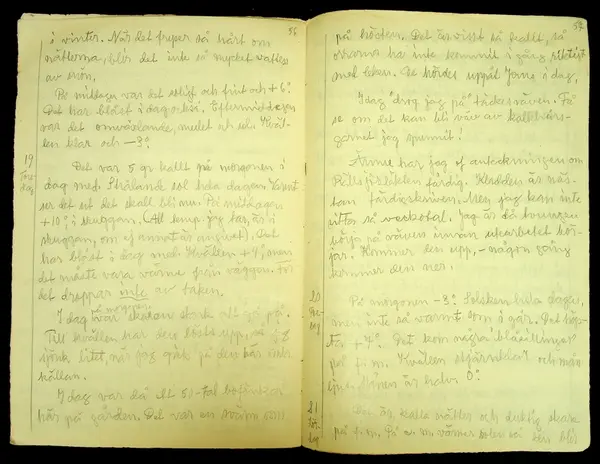 56
i vinter. När det fryser så hårt om
nätterna, blir det inte så mycket vatten
av snön.
På middagen var det soligt och fint och +6°.
Det har blåst i dag också. Eftermiddagen
var det omväxlande, mulet och sol. Kväl-
len klar och -3°.
19
Tors-
dag
Det var 5 gr kallt på morgonen i
dag med. Strålande sol hela dagen.
ser det ut det skall bli nu. På middagen
+10° i skuggan. (All temp. jag tar, är i
skuggan, om ej annat är angivet). Det
har blåst i dag med. Kvällen +4°, men
det måste vara värme från väggen. För
det droppar inte av taken.
I dag på morgonen var skaran stark att gå på.
Till kvällen har den löst upp, så jag
sjönk litet, när jag gick på den här
källan.
I dag var då ett 50-tal bofinkar
här på gården. Det var en svärm som
57
på hösten. Det är visst så kallt, så
orrarna har inte kommit i gång riktigt
med leken. De hördes uppåt i dag.
I dag "drog jag på" täckesväven. Få
se om det kan bli väv av
garnet jag spunnit!
Ännu har jag ej anteckningen om
färdig. är näs-
tan färdigskriven. Men jag kan inte
hitta så Jag är då tvungen
börja på väven innan utearbetet bör-
jar. Kommer den upp, - någon gång
kommer den ner.
20
Fre-
dag
På morgonen -3°. Solsken hela dagen,
men inte så varmt som i går. Det
+4°. Det kom några
på f.m. Kvällen stjärnklar och
är halv 0°.
21
Lör-
dag
kalla nätter och duktig skare
på f.m. På e.m. värmer solen så blir